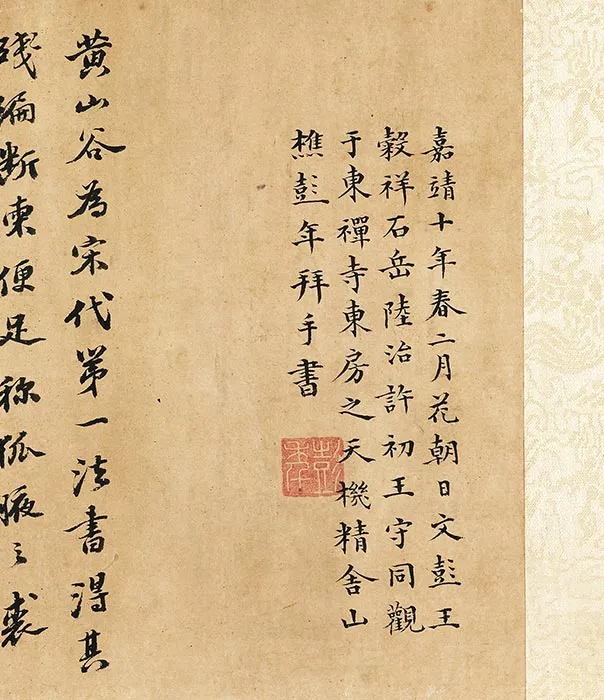 嘉靖十年春二月花朝日文彭王
穀祥石岳陸治許初王守同觀
于東禪寺東房之天機精舍山
樵彭年拜手書
彭年
黄山谷為宋代第一法書得其
殘編断柬便足称狐腋之裘